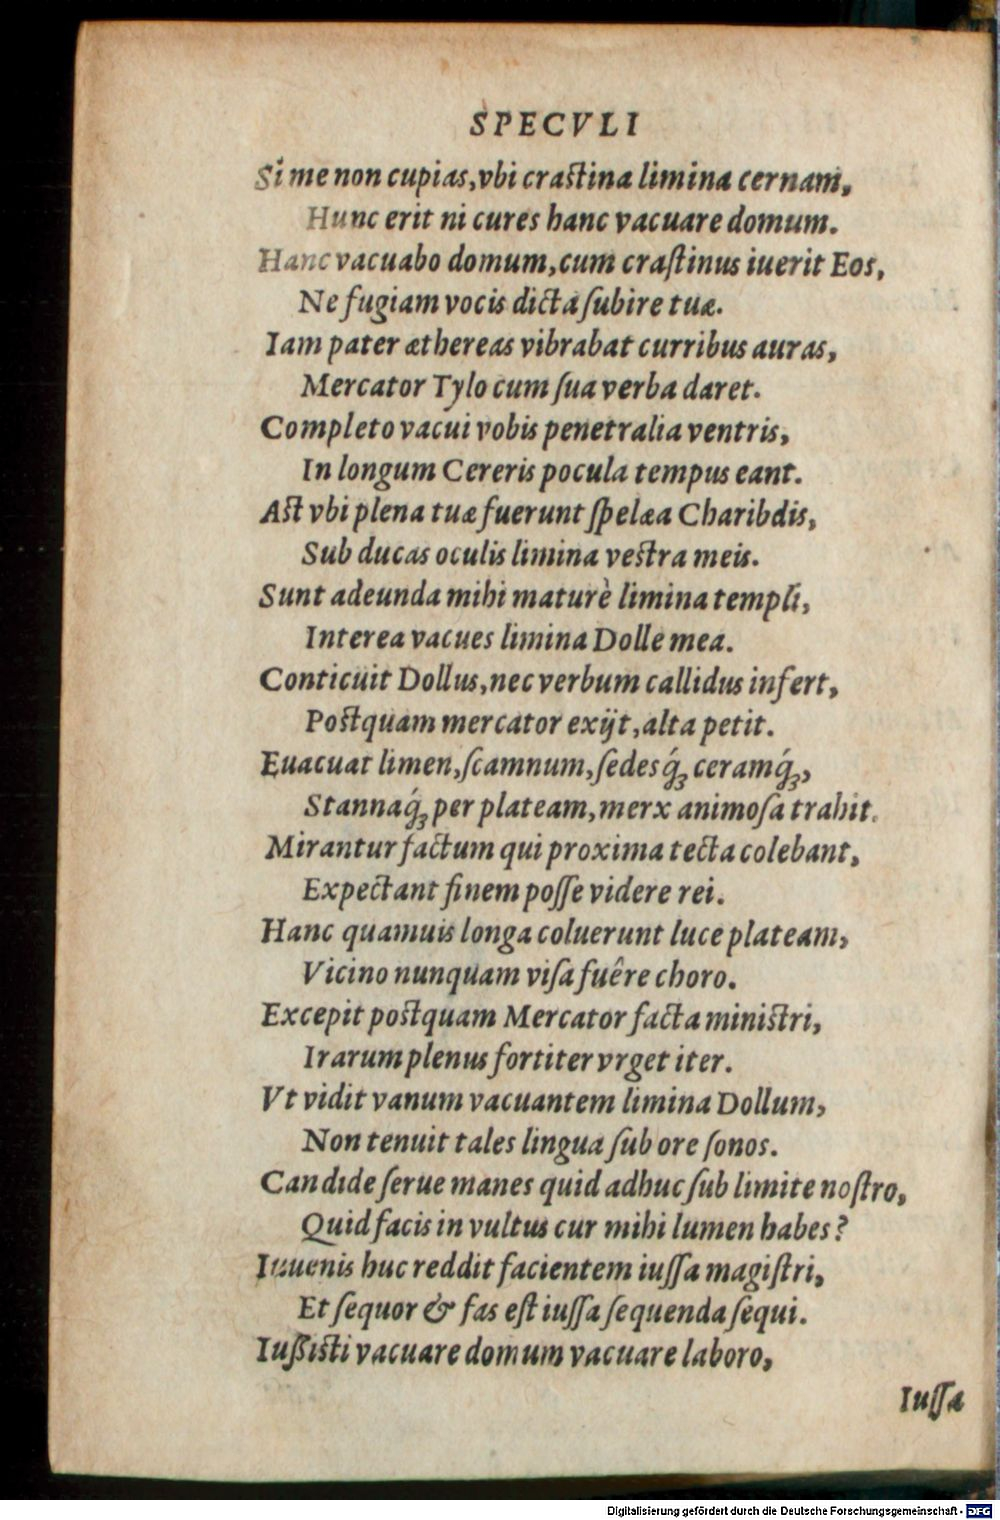 SPECVLI
Si me non cupias, vbi crastina limina cernam,
Hunc erit ni cures hanc vacuare domum.
Hanc vacuabo domum, cum craſtinus iuerit Eos,
Ne fugiam vocis dicta ſubire tuæ.
Iam pater æthereas vibrabat curribus auras,
Mercator Tylo cum ſua verba daret.
Completo vacui vobis penetralia ventris,
In longum Cereris pocula tempus eant.
Ast vbi plena tuæ fuerunt ſpelæa Charibdis,
Sub ducas oculis limina vestra meis.
Sunt adeunda mihi maturè limina templi,
Interea vacues limina Dolle mea.
Conticuit Dollus, nec verbum callidus infert,
Postquam mercator exijt, alta petit.
Euacuat limen, ſcamnum, ſedesq́ꝫ ceramq́ꝫ,
Stannaq́ꝫ per plateam, merx animoſa trahit.
Mirantur factum qui proxima tecta colebant,
Expectant finem poſſe videre rei.
Hanc quamuis longa coluerunt luce plateam,
Vicino nunquam viſa fuêre choro.
Excepit postquam Mercator facta ministri,
Irarum plenus fortiter vrget iter.
Vt vidit vanum vacuantem limina Dollum,
Non tenuit tales lingua ſub ore ſonos.
Candide ſerue manes quid adhuc ſub limite noſtro,
Quid facis in vultus cur mihi lumen habes?
Iuuenis huc reddit facientem iuſſa magiſtri,
Et ſequor & fas eſt iuſſa ſequenda ſequi.
Iußisti vacuare domum vacuare laboro,
Iuſſa
Digitalisierung gefördert durch die Deutsche Forschungsgemeinschaft - DFG